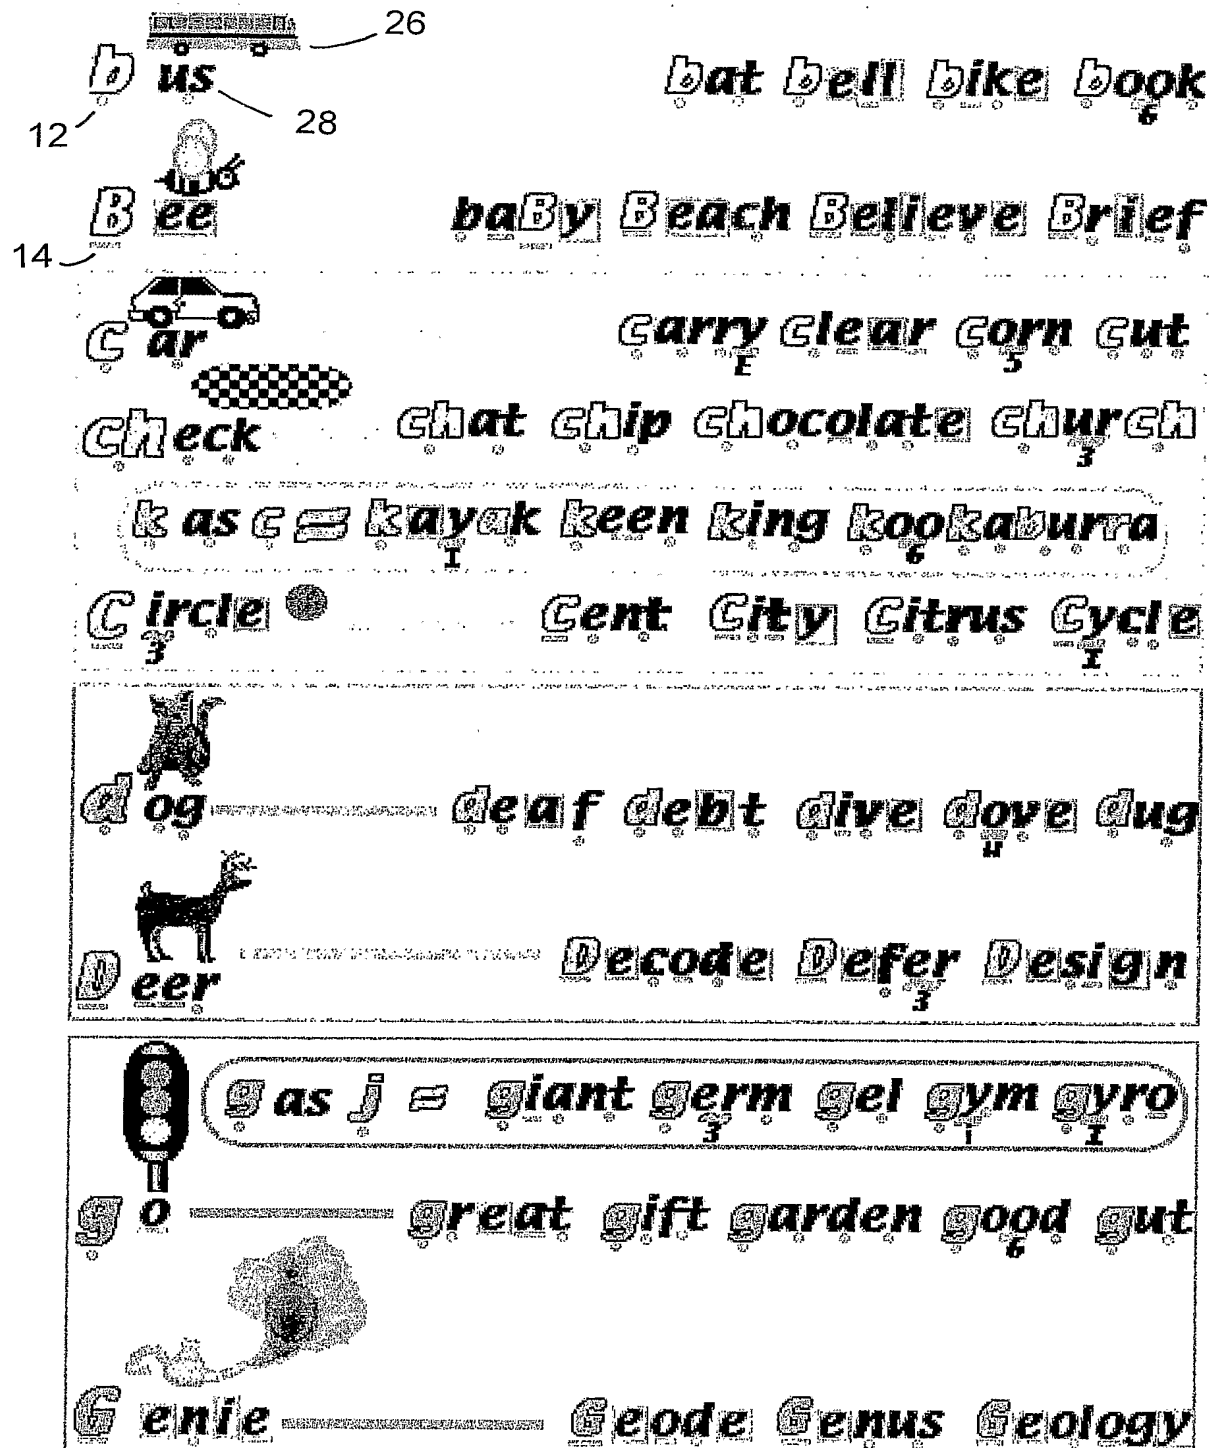 26
b us bat bell bike book
6
12 28
B ee baBy Beach Believe Brief
14
C ar carry clear corn cut
E 5
check chat chip chocolate church
3
k as c = kayak keen king kookaburra
I 6
Circle Cent City Citrus Cycle
3 I
d og deaf debt dive dove dug
u
D eer Decode Defer Design
3
g as j = giant germ gel gym gyro
3 i I
g o great gift garden good gut
6
G enie Geode Genus Geology